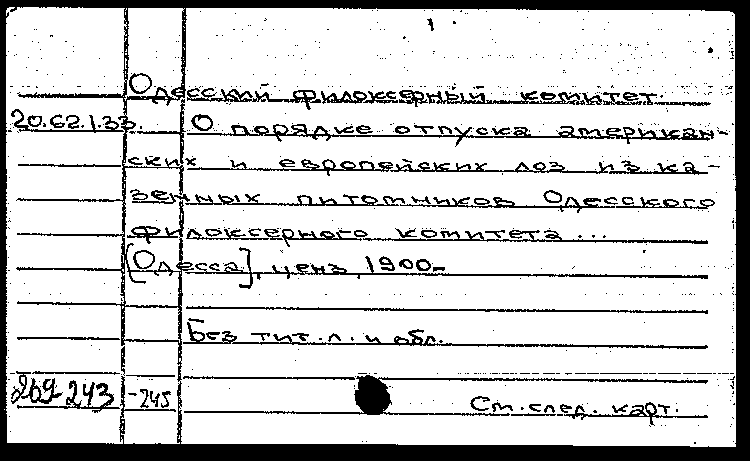 Одесский филоксерный комитет.
20.62.1.33. О порядке отпуска американ-
ских и европейских лоз из ка-
зенных питомников Одесского
филоксерного комитета...
[Одесса], ценз. 1900-
Без тит. л. и обл.
269-243 -245 См. след. карт.